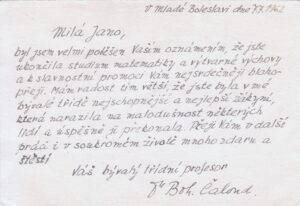 V Mladé Boleslavi dne 7.7.1962
Milá Jano,
byl jsem velmi potěšen Vaším oznámením, že jste
ukončila studium matematiky a výtvarné výchovy
a k slavnostní promoci Vám nejsrdečněji blaho-
přeji. Mám radost tím větší, že jste byla v mé
bývalé třídě nejschopnější a nejlepší žákyní,
která narazila na malodušnost některých
lidí a úspěšně ji překonala. Přeji Vám v další
práci i v soukromém životě mnoho zdaru a
štěstí
Váš bývalý třídní profesor
Boh. Čaloud.